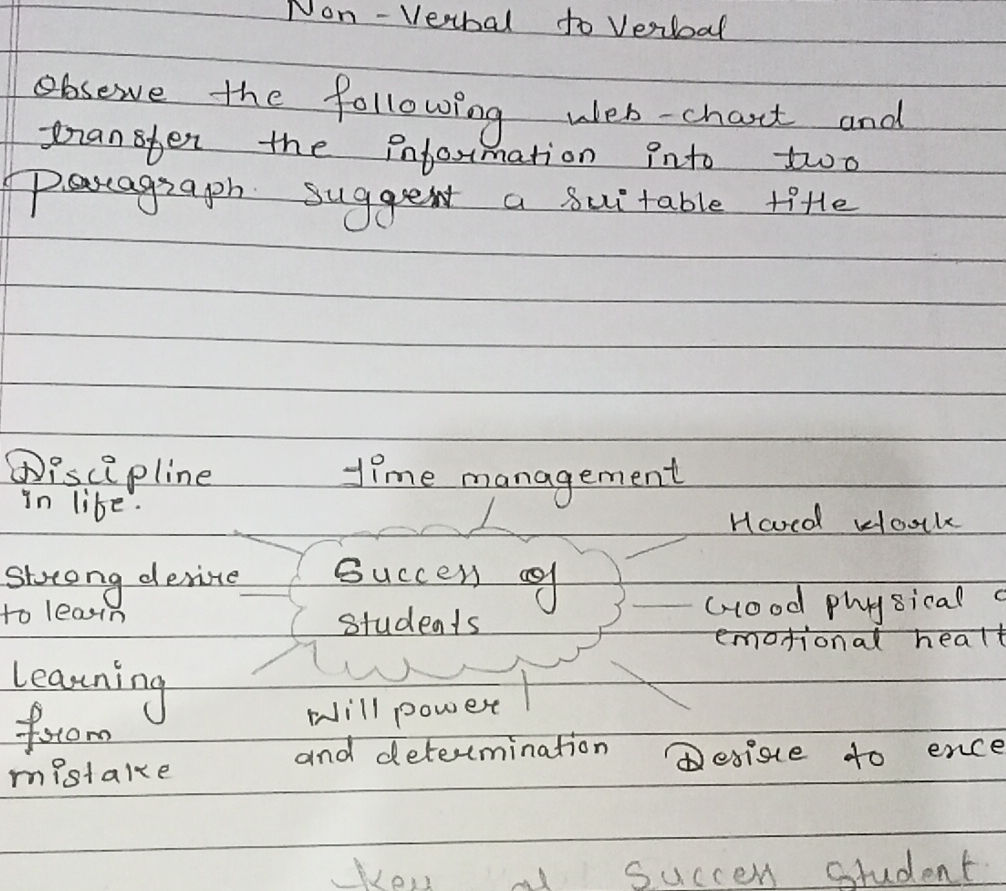 Non-Verbal to Verbal
Observe the following web-chart and
transfer the information into two
Paragraph. suggest a suitable title
Discipline
in life.
time management
Hard work
Strong desire
to learn
Success of
students
Good physical
emotional healt
Learning
from
mistake
Will power
and determination
Desire to exce
Key
Success Student